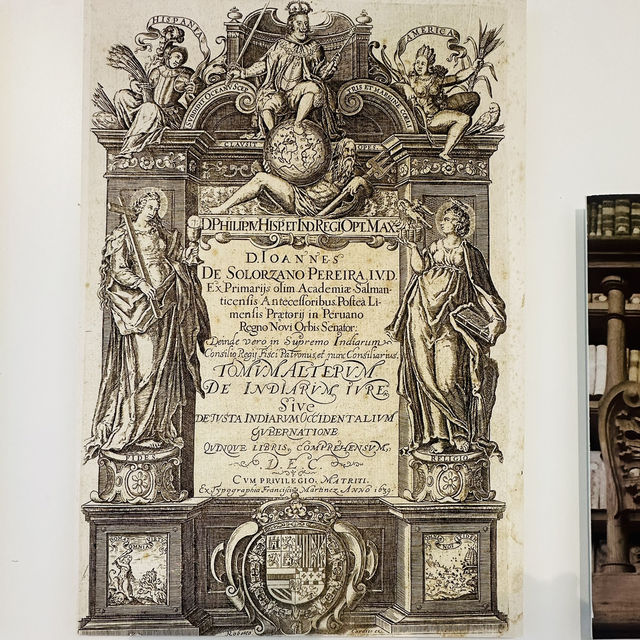 HISPANIA
AMERICA
D. PHILIP IV HISP. ET IND. REGI OPT. MAX.
D. IOANNES
DE SOLORZANO PEREIRA, I.V.D.
Ex Primarijs olim Academiæ Salman-
ticensis Antecessoribus. Postea Li-
mensis Prætorij in Peruano
Regno Novi Orbis Senator:
Deinde verò in Supremo Indiarum
Consilio Regij Fisci Patronus, et nunc Consiliarius.
TOMVM ALTERVM
DE INDIARVM IVRE,
Sive
DE IUSTA INDIARUM OCCIDENTALIVM
GUBERNATIONE
QUINQUE LIBRIS, COMPREHENSVM,
D. E. C.
CVM PRIVILEGIO, MATRITI.
Ex Typographia Francisci Martinez, ANNO 1639
FIDES
RELIGIO